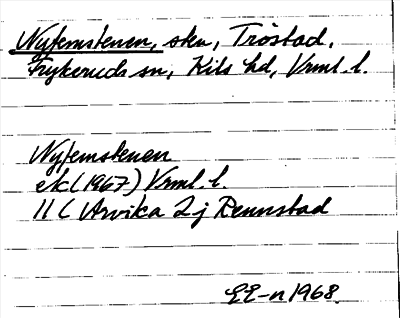 Nyfemstenen, sten, Tröstad,
Frykeruds sn, Kils hd, Vrml. l.
Nyfemstenen
ek (1967) Vrml. l.
11 C Arvika 2 j Rennstad
EE-n 1968.